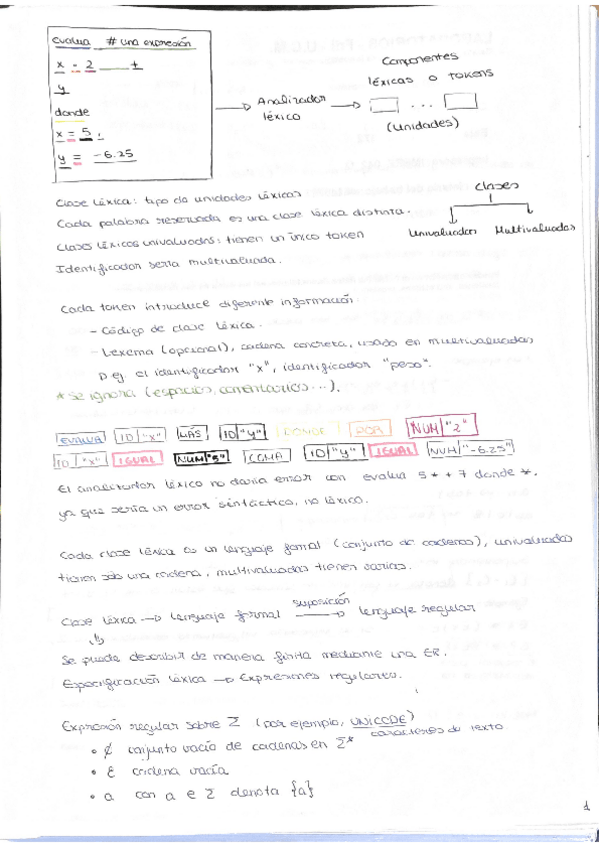 Evalua # una expresión
x - 2 +
y
donde
x = 5,
y = -6.25
Analizador
léxico
Componentes
léxicas o tokens
...
(unidades)
Clase léxica: tipo de unidades léxicas
Cada palabra reservada es una clase léxica distinta.
Clases léxicas univaluadas: tienen un único token
Identificador sería multivaluada.
Clases
Univaluadas Multivaluadas
Cada token introduce diferente información
- Código de clase léxica.
- Lexema (opcional), cadena concreta, usado en multivaluadas
p ej el identificador "x", identificador "peso".
* se ignora (espacios, comentarios...).
EVALUA ID "x" MÁS ID "y" DONDE POR NUM "2"
ID "x" IGUAL NUM "5" COMA ID "y" IGUAL NUM "-6.25"
El analizador léxico no daría error con evalua 5 * + 7 donde *,
ya que sería un error sintáctico, no léxico.
Cada clase léxica es un lenguaje formal (conjunto de cadenas), univaluadas
tienen solo una cadena, multivaluadas tienen varias.
Clase léxica → lenguaje formal suposición → lenguaje regular
Se puede describir de manera finita mediante una ER.
Especificación léxica → Expresiones regulares.
Expresión regular sobre Σ (por ejemplo, UNICODE)
caracteres de texto
• ∅ conjunto vacío de cadenas en Σ*
• ε cadena vacía
• a con a ∈ Σ denota {a}
1